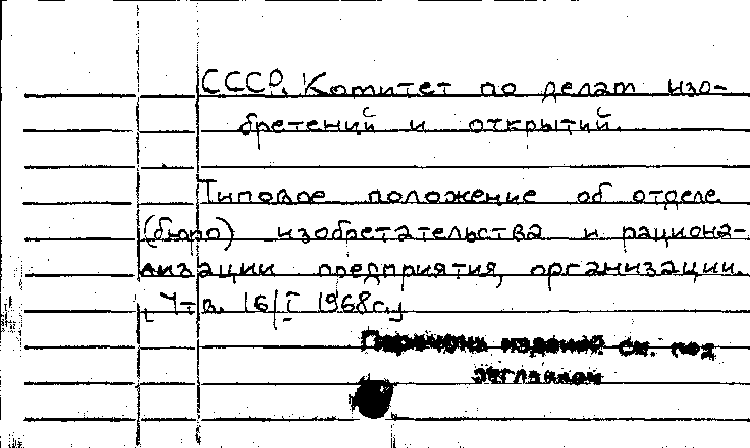 СССР. Комитет по делам изо-
бретений и открытий.
Типовое положение об отделе
(бюро) изобретательства и рациона-
лизации предприятия, организации.
[Утв. 16/I 1968г.]
Перечень изданий см. под
заглавием